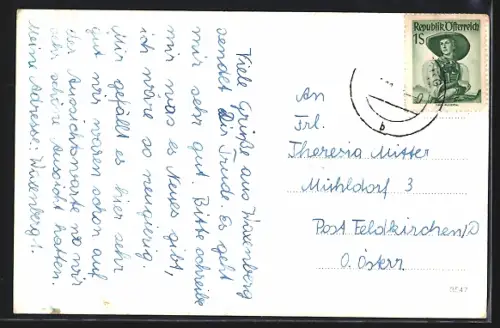 Viele Grüße aus Waxenberg
sendet Dir Trude. Es geht
mir sehr gut. Bitte schreibe
mir was es Neues gibt,
ich wäre so neugierig.
Mir gefällt es hier sehr
gut wir waren schon auf
der Aussichtswarte wo wir
sehr schöne Aussicht hatten.
Meine Adresse: Waxenberg 1.
Republik Österreich
1S
b
An
Frl.
Theresia Mitter
Mühldorf 3
Post Feldkirchen/D
O. Österr